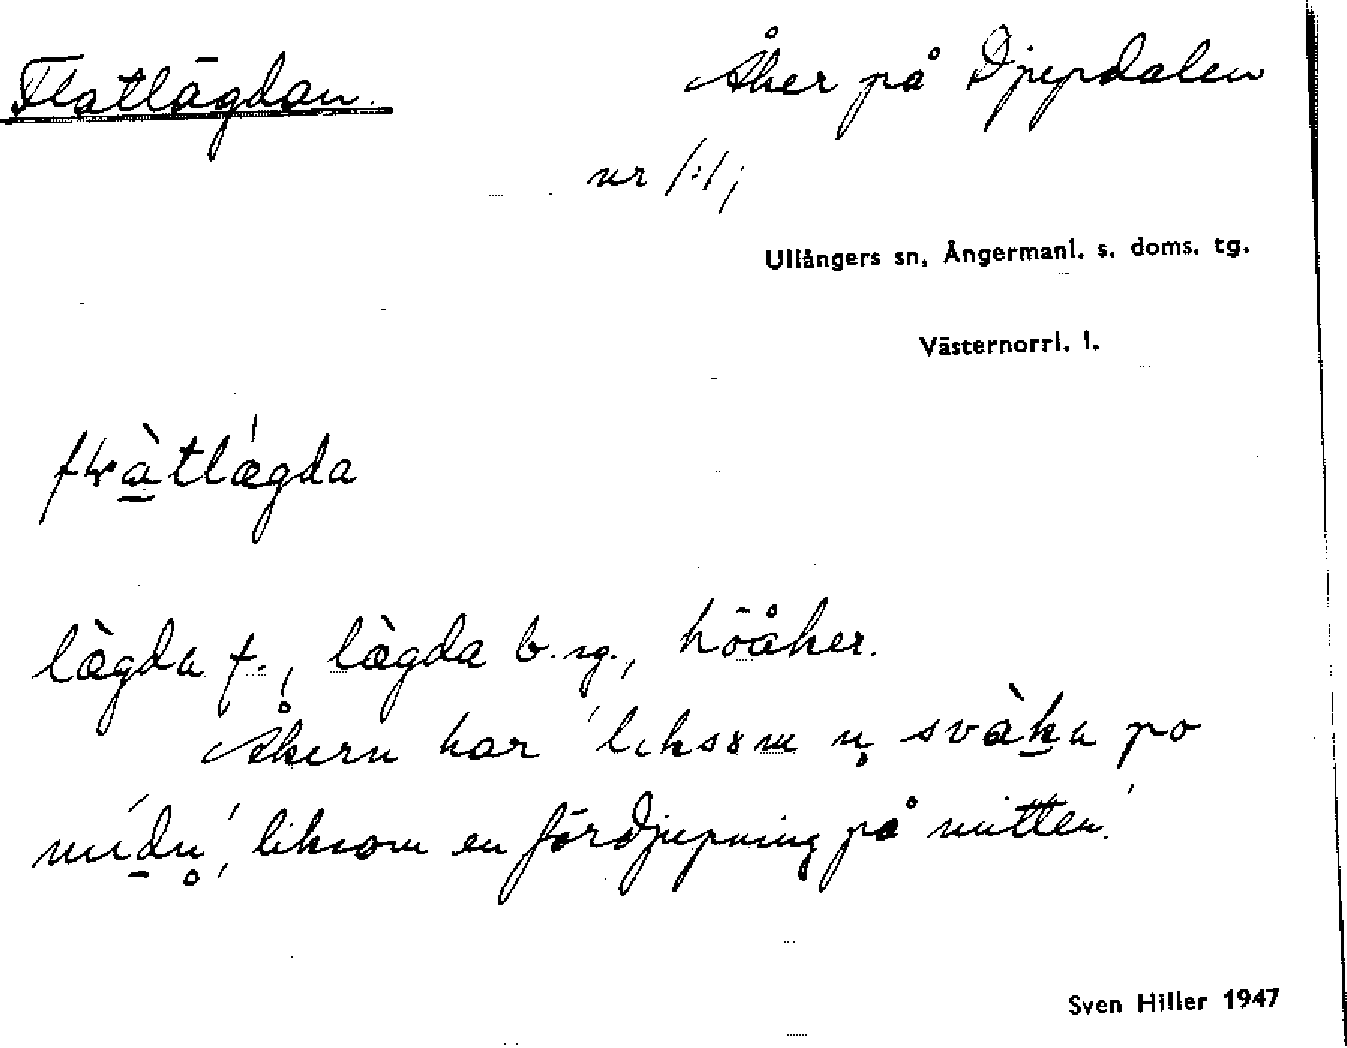 Flatlägdan.
Åker på Djupdalen
nr 1:1;
Ullångers sn, Ångermanl. s. doms. tg.
Västernorrl. l.
lægda f., lægda b. sg., höåker.
Åkern har 'liksom n̥ svàka po
midn̥', liksom en fördjupning på mitten.'
Sven Hiller 1947